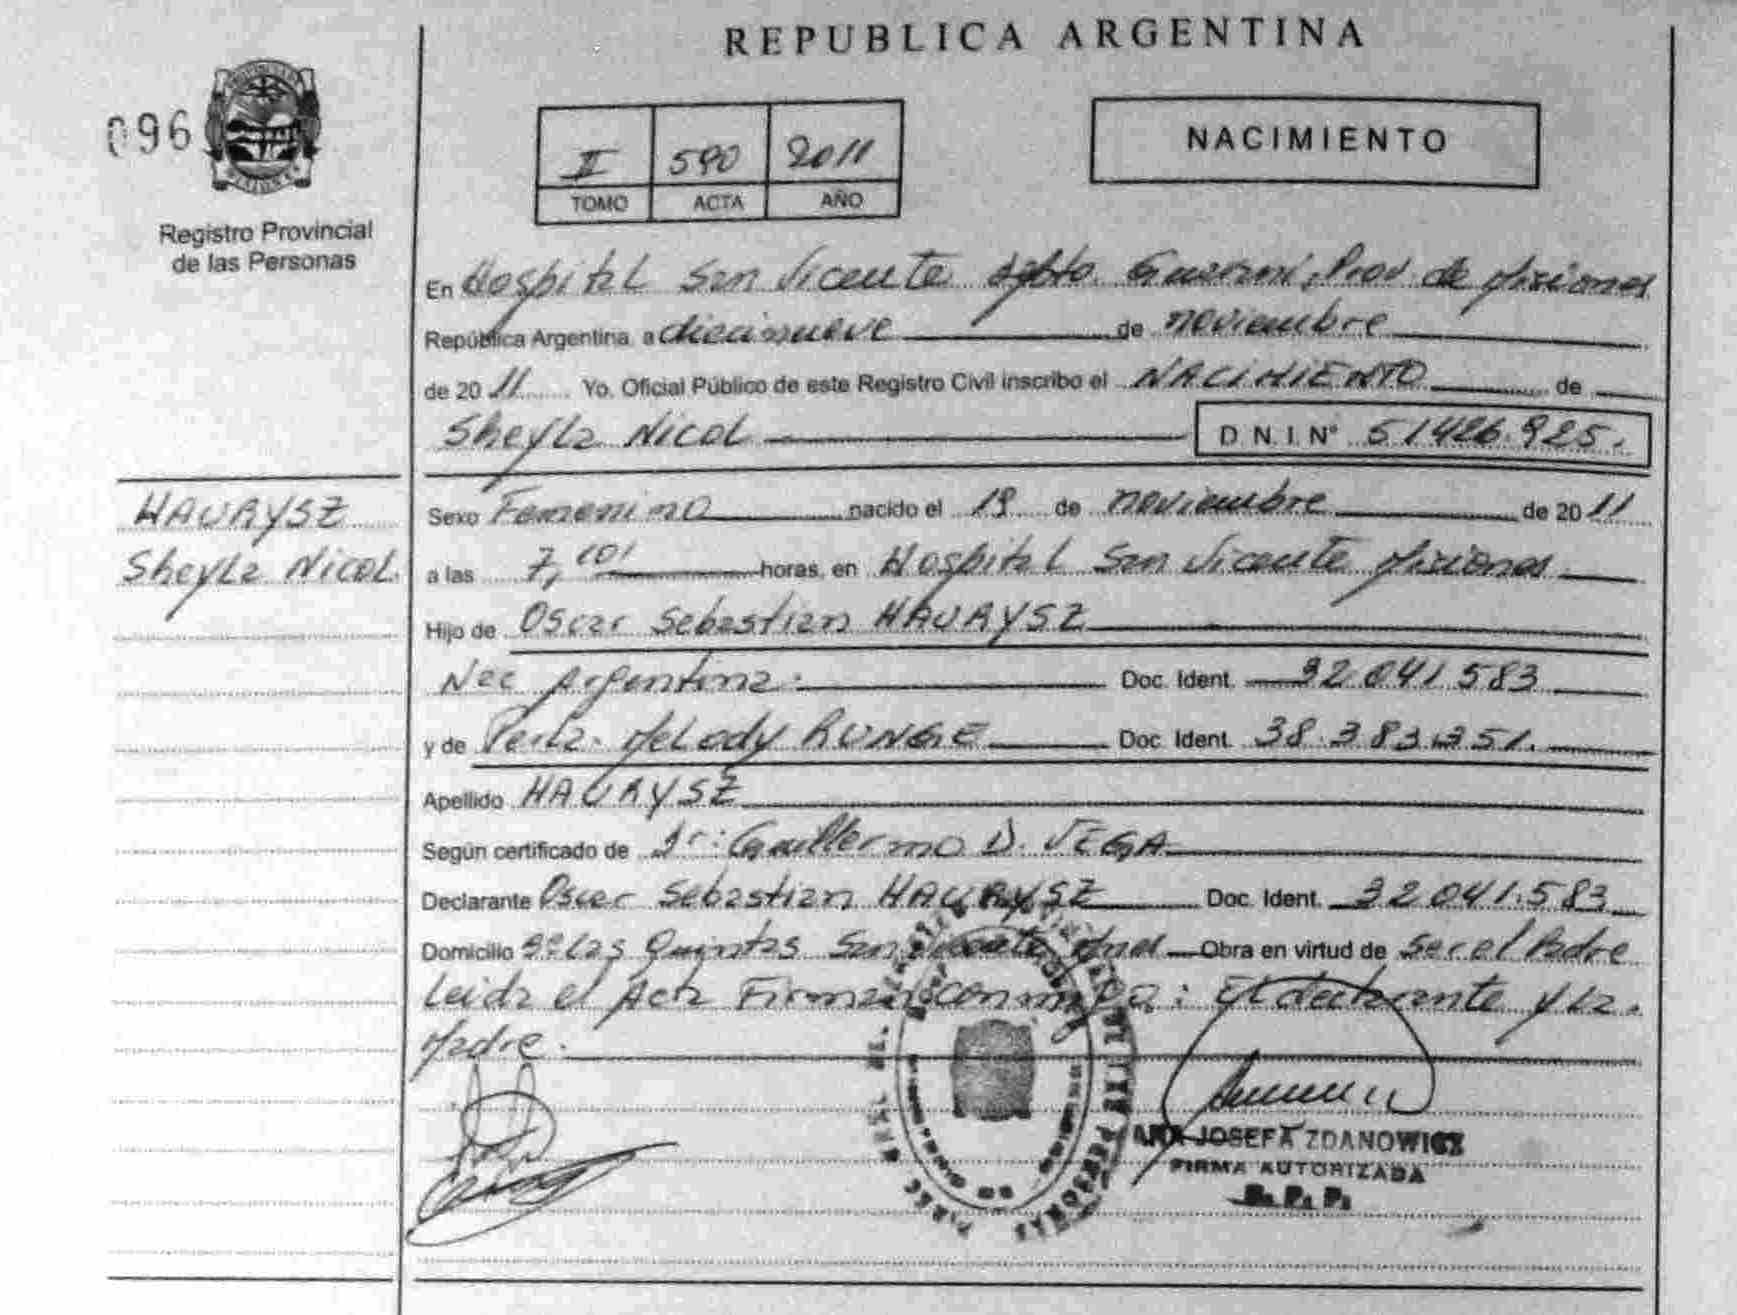 REPUBLICA ARGENTINA
096
NACIMIENTO
II 590 2011
TOMO ACTA AÑO
Registro Provincial
de las Personas
En Hospital San Vicente Dpto. Guarani, Prov. de Misiones
República Argentina, a diecinueve de noviembre
de 2011 Yo, Oficial Público de este Registro Civil inscribo el NACIMIENTO de
Sheyla Nicol D.N.I. Nº 51426.925.
HAURYSZ
Sheyla Nicol.
Sexo Femenino nacido el 19 de noviembre de 2011
a las 7, horas, en Hospital San Vicente Misiones
Hijo de Oscar Sebastian HAURYSZ
Nac Argentina. Doc. Ident. 32.041.583
y de Melody RUNGE Doc. Ident. 38.383.351.
Apellido HAURYSZ
Según certificado de Dr: Guillermo D. VEGA
Declarante Oscar Sebastian HAURYSZ Doc. Ident. 32.041.583
Domicilio Bº Las Quintas San Vicente Mnes Obra en virtud de Ser el Padre
Leida el Acta Firman conmigo: El declarante y La
Madre.
ANA JOSEFA ZDANOWICZ
FIRMA AUTORIZADA
R. P. P.